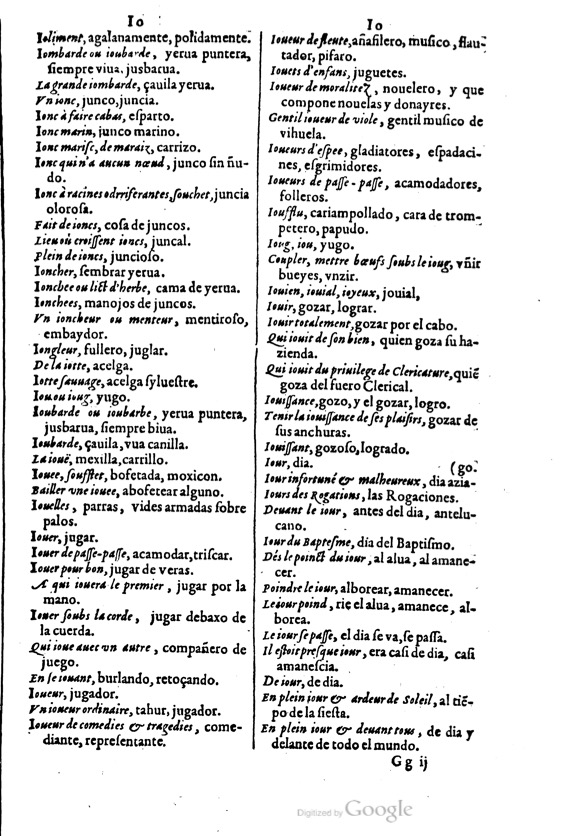 Io
Ioliment, agalanamente, polidamente.
Iombarde ou ioubarde, yerua puntera,
ſiempre viua, jusbarua.
La grande iombarde, çauila yerua.
Vn ionc, junco, juncia.
Ionc à faire cabas, eſparto.
Ionc marin, junco marino.
Ionc mariſc, de maraiz, carrizo.
Ionc qui n'a aucun nœud, junco ſin ñu-
do.
Ionc à racines odrriferantes, ſouchet, juncia
oloroſa.
Fait de ioncs, coſa de juncos.
Lieu où croiſſent ioncs, juncal.
Plein de ioncs, juncioſo.
Ioncher, ſembrar yerua.
Ionchee ou lict d'herbe, cama de yerua.
Ionchees, manojos de juncos.
Vn ioncheur ou menteur, mentiroſo,
embaydor.
Iongleur, fullero, juglar.
De la iotte, acelga.
Iotte ſauuage, acelga ſylueſtre.
Iou ou ioug, yugo.
Ioubarde ou ioubarbe, yerua puntera,
jusbarua, ſiempre biua.
Ioubarde, çauila, vua canilla.
La iouë, mexilla, carrillo.
Iouee, ſoufflet, bofetada, moxicon.
Bailler vne iouee, abofetear alguno.
Iouelles, parras, vides armadas ſobre
palos.
Iouer, jugar.
Iouer de paſſe-paſſe, acomodar, triſcar.
Iouer pour bon, jugar de veras.
A qui iouera le premier, jugar por la
mano.
Iouer ſoubs la corde, jugar debaxo de
la cuerda.
Qui ioue auec vn autre, compañero de
juego.
En ſe iouant, burlando, retoçando.
Ioueur, jugador.
Vn ioueur ordinaire, tahur, jugador.
Ioueur de comedies & tragedies, come-
diante, repreſentante.
Io
Ioueur de fleute, añafilero, muſico, flau-
tador, pifaro.
Iouets d'enfans, juguetes.
Ioueur de moralitez, nouelero, y que
compone nouelas y donayres.
Gentil ioueur de viole, gentil muſico de
vihuela.
Ioueurs d'eſpee, gladiatores, eſpadaci-
nes, eſgrimidores.
Ioueurs de paſſe-paſſe, acamodadores,
folleros.
Ioufflu, cariampollado, cara de trom-
petero, papudo.
Ioug, iou, yugo.
Coupler, mettre bœufs ſoubs le ioug, vñir
bueyes, vnzir.
Iouien, iouial, ioyeux, jouial,
Iouir, gozar, lograr.
Iouir totalement, gozar por el cabo.
Qui iouit de ſon bien, quien goza ſu ha-
zienda.
Qui iouit du priuilege de Clericature, quiē
goza del fuero Clerical.
Iouiſſance, gozo, y el gozar, logro.
Tenir la iouiſſance de ſes plaiſirs, gozar de
ſus anchuras.
Iouiſſant, gozoſo, logrado.
Iour, dia. (go.
Iour infortuné & malheureux, dia azia-
Iours des Rogations, las Rogaciones.
Deuant le iour, antes del dia, antelu-
cano.
Iour du Bapteſme, dia del Baptiſmo.
Dés le poinct du iour, al alua, al amane-
cer.
Poindre le iour, alborear, amanecer.
Le iour poind, rie el alua, amanece, al-
borea.
Le iour ſe paſſe, el dia ſe va, ſe paſſa.
Il eſtoit preſque iour, era caſi de dia, caſi
amaneſcia.
De iour, de dia.
En plein iour & ardeur de Soleil, al tiē-
po de la ſieſta.
En plein iour & deuant tous, de dia y
delante de todo el mundo.
G g ij
Digitized by Google